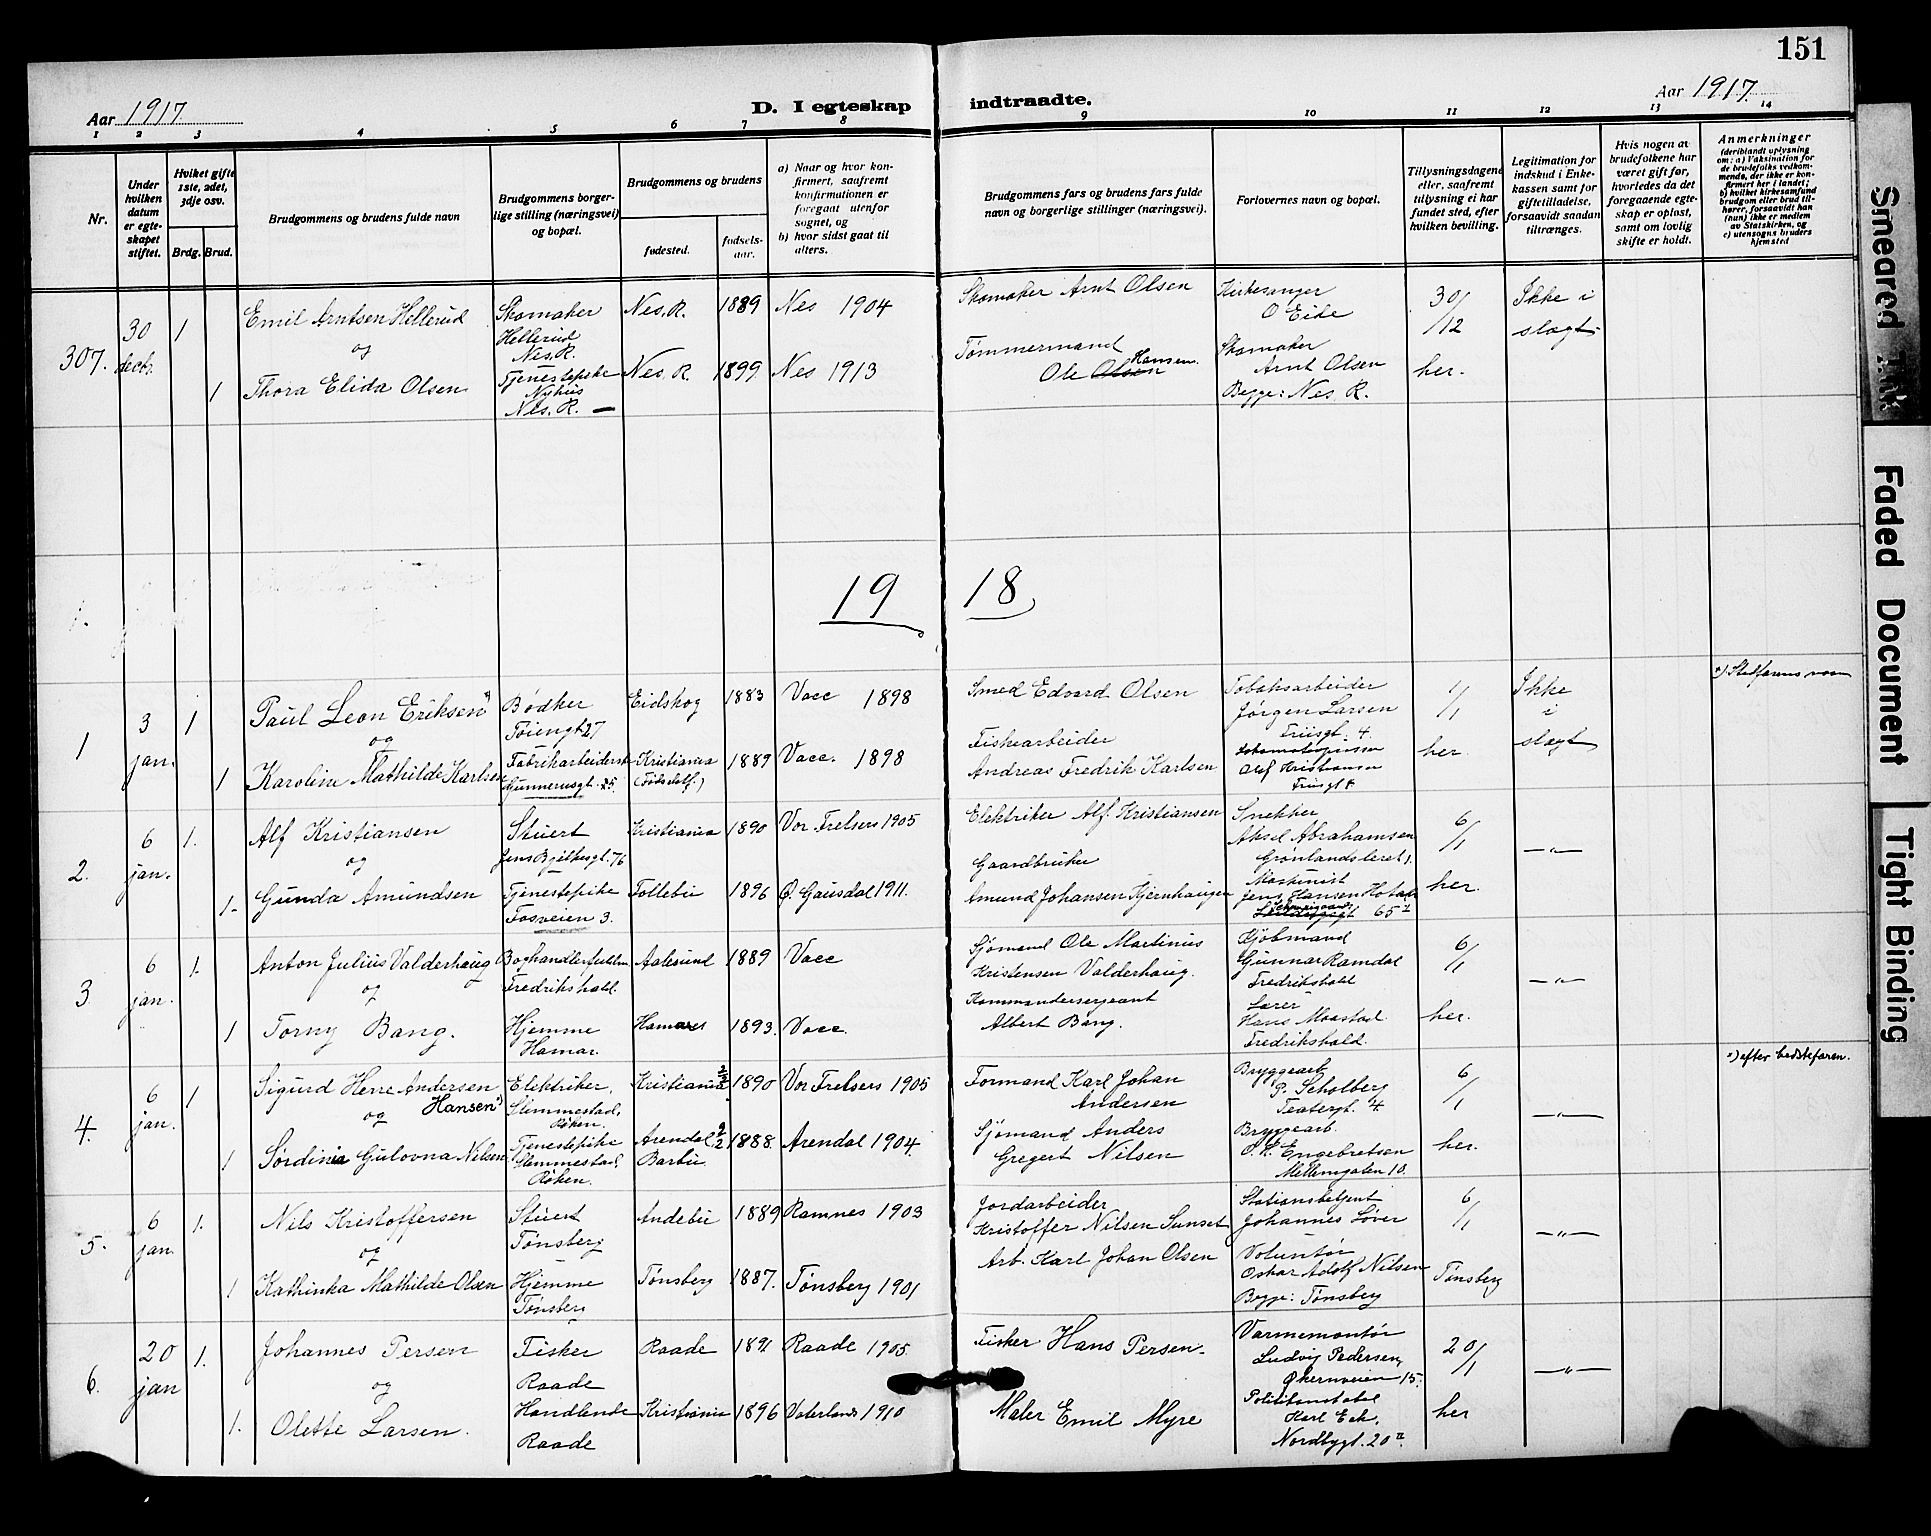 151
Aar 1917
D. I egteskap indtraadte.
Aar 1917.
1 2 3 4 5 6 7 8 9 10 11 12 13 14
Nr.
Under hvilken datum er egteskapet stiftet.
Hvilket gifte 1ste, 2det, 3dje osv.
Brdg. Brud.
Brudgommens og brudens fulde navn
Brudgommens borgerlige stilling (næringsvei) og bopæl.
Brudgommens og brudens
fødested.
fødselsaar.
a) Naar og hvor konfirmert, saafremt konfirmationen er foregaat utenfor sognet, og
b) hvor sidst gaat til alters.
Brudgommens fars og brudens fars fulde navn og borgerlige stillinger (næringsvei).
Forlovernes navn og bopæl.
Tillysningsdagene eller, saafremt tillysning ei har fundet sted, efter hvilken bevilling.
Legitimation for indskud i Enkekassen samt for giftetilladelse, forsaavidt saadan tiltrænges.
Hvis nogen av brudefolkene har været gift før, hvorledes da det foregaaende egteskap er opløst, samt om lovlig skifte er holdt.
Anmerkninger (deriblandt oplysning om: a) Vaksination for de brudefolks vedkommende, der ikke er konfirmert her i landet; b) hvilket kirkesamfund brudgom eller brud tilhører, forsaavidt han (hun) ikke er medlem av Statskirken, og c) utensogns bruders hjemsted
307. 30 decbr. 1
Emil Arntsen Hellerud
Skomaker Hellerud Nes. R.
Nes. R. 1889 Nes 1904
Skomaker Arnt Olsen
Kirkesanger O Eide
30/12
Ikke i slegt
og
1 Thora Elida Olsen
Tjenestepike Nyhus Nes. R.
Nes. R. 1899 Nes 1913
Tømmermand Ole Olsen Hansen
Skomaker Arnt Olsen
Begge: Nes R.
her.
19 18
1 3 jan. 1
Paul Leon Eriksen
Bødker Tøiengt 27
Eidskog 1883 Vacc 1898
Smed Edvard Olsen
Tobaksarbeider Jørgen Larsen Friisgt. 4.
1/1
Ikke i slegt
*) Stedfarens navn
og
1 Karolina Mathilde Karlsen
Fabrikarbeiderske Gunnerusgt. 25.
Kristiania (Fødselstf.) 1889 Vacc. 1898
Fiskearbeider Andreas Fredrik Karlsen
Olaf Kristiansen Friisgt 4
her.
2. 6 jan. 1.
Alf Kristiansen
Stuert Jens Bjelkesgt. 76
Kristiania 1890 Vor Frelsers 1905
Elektriker Alf. Kristiansen
Snekker Aksel Abrahamsen Grønlandsleret 1.
6/1
—„—
og
1. Gunda Amundsen
Tjenestepike Fosveien 3.
Follebu 1896 Ø. Gausdal 1911.
Gaardbruker Amund Johansen Kjernhaugen
Maskinist Jens Hansen 65
her.
3 6 jan. 1.
Anton Julius Valderhaug
Boghandlerfuldm Fredrikshald.
Aalesund 1889 Vacc
Sjømand Ole Martinus Kristensen Valderhaug.
Kjøbmand Gunnar Ramdal Fredrikshald
6/1
—„—
og
1 Torny Bang.
Hjemme Hamar.
Hamar 1893. Vacc.
Kommandersergeant Albert Bang.
Lærer Hans Maastad. Fredrikshald.
her.
4. 6 jan. 1
Sigurd Herre Andersen Hansen
Elektriker, Slemmestad, Røken.
Kristiania 1890 Vor Frelsers 1905
Formand Karl Johan Andersen
Bryggearb P. Scholberg Teatergt. 4.
6/1
—„—
*) efter bedstefaren.
og
1 Sørdinia Gulovna Nilsen
Tjenestepike Slemmestad, Røken.
Arendal Barbu. 1888 Arendal 1904.
Sjømand Anders Gregert Nilsen
Bryggearb. O. K. Engebretsen Mellemgaten 10.
her.
5. 6 jan. 1.
Nils Kristoffersen
Stuert Tønsberg
Andebu 1889 Ramnes 1903
Jordarbeider Kristoffer Nilsen Sunset
Stationsbetjent Johannes Løver
6/1
—„—
og
1 Kathinka Mathilde Olsen
Hjemme Tønsberg
Tønsberg 1887. Tønsberg 1901
Arb. Karl Johan Olsen
Voluntør Oskar Adolf Nilsen
Begge: Tønsberg
Tønsberg
6. 20 jan 1.
Johannes Persen
Fisker Raade
Raade 1891 Raade 1905.
Fisker Hans Persen.
Varmemontør Ludvig Pedersen, Økernveien 15.
20/1
—„—
og
1. Olette Larsen.
Handlende Raade
Kristiania 1896 Vaterland 1910
Maler Emil Myre
Politikonstabel Karl Eek, Nordbygt. 20
her
Smeared Ink
Faded Document
Tight Binding